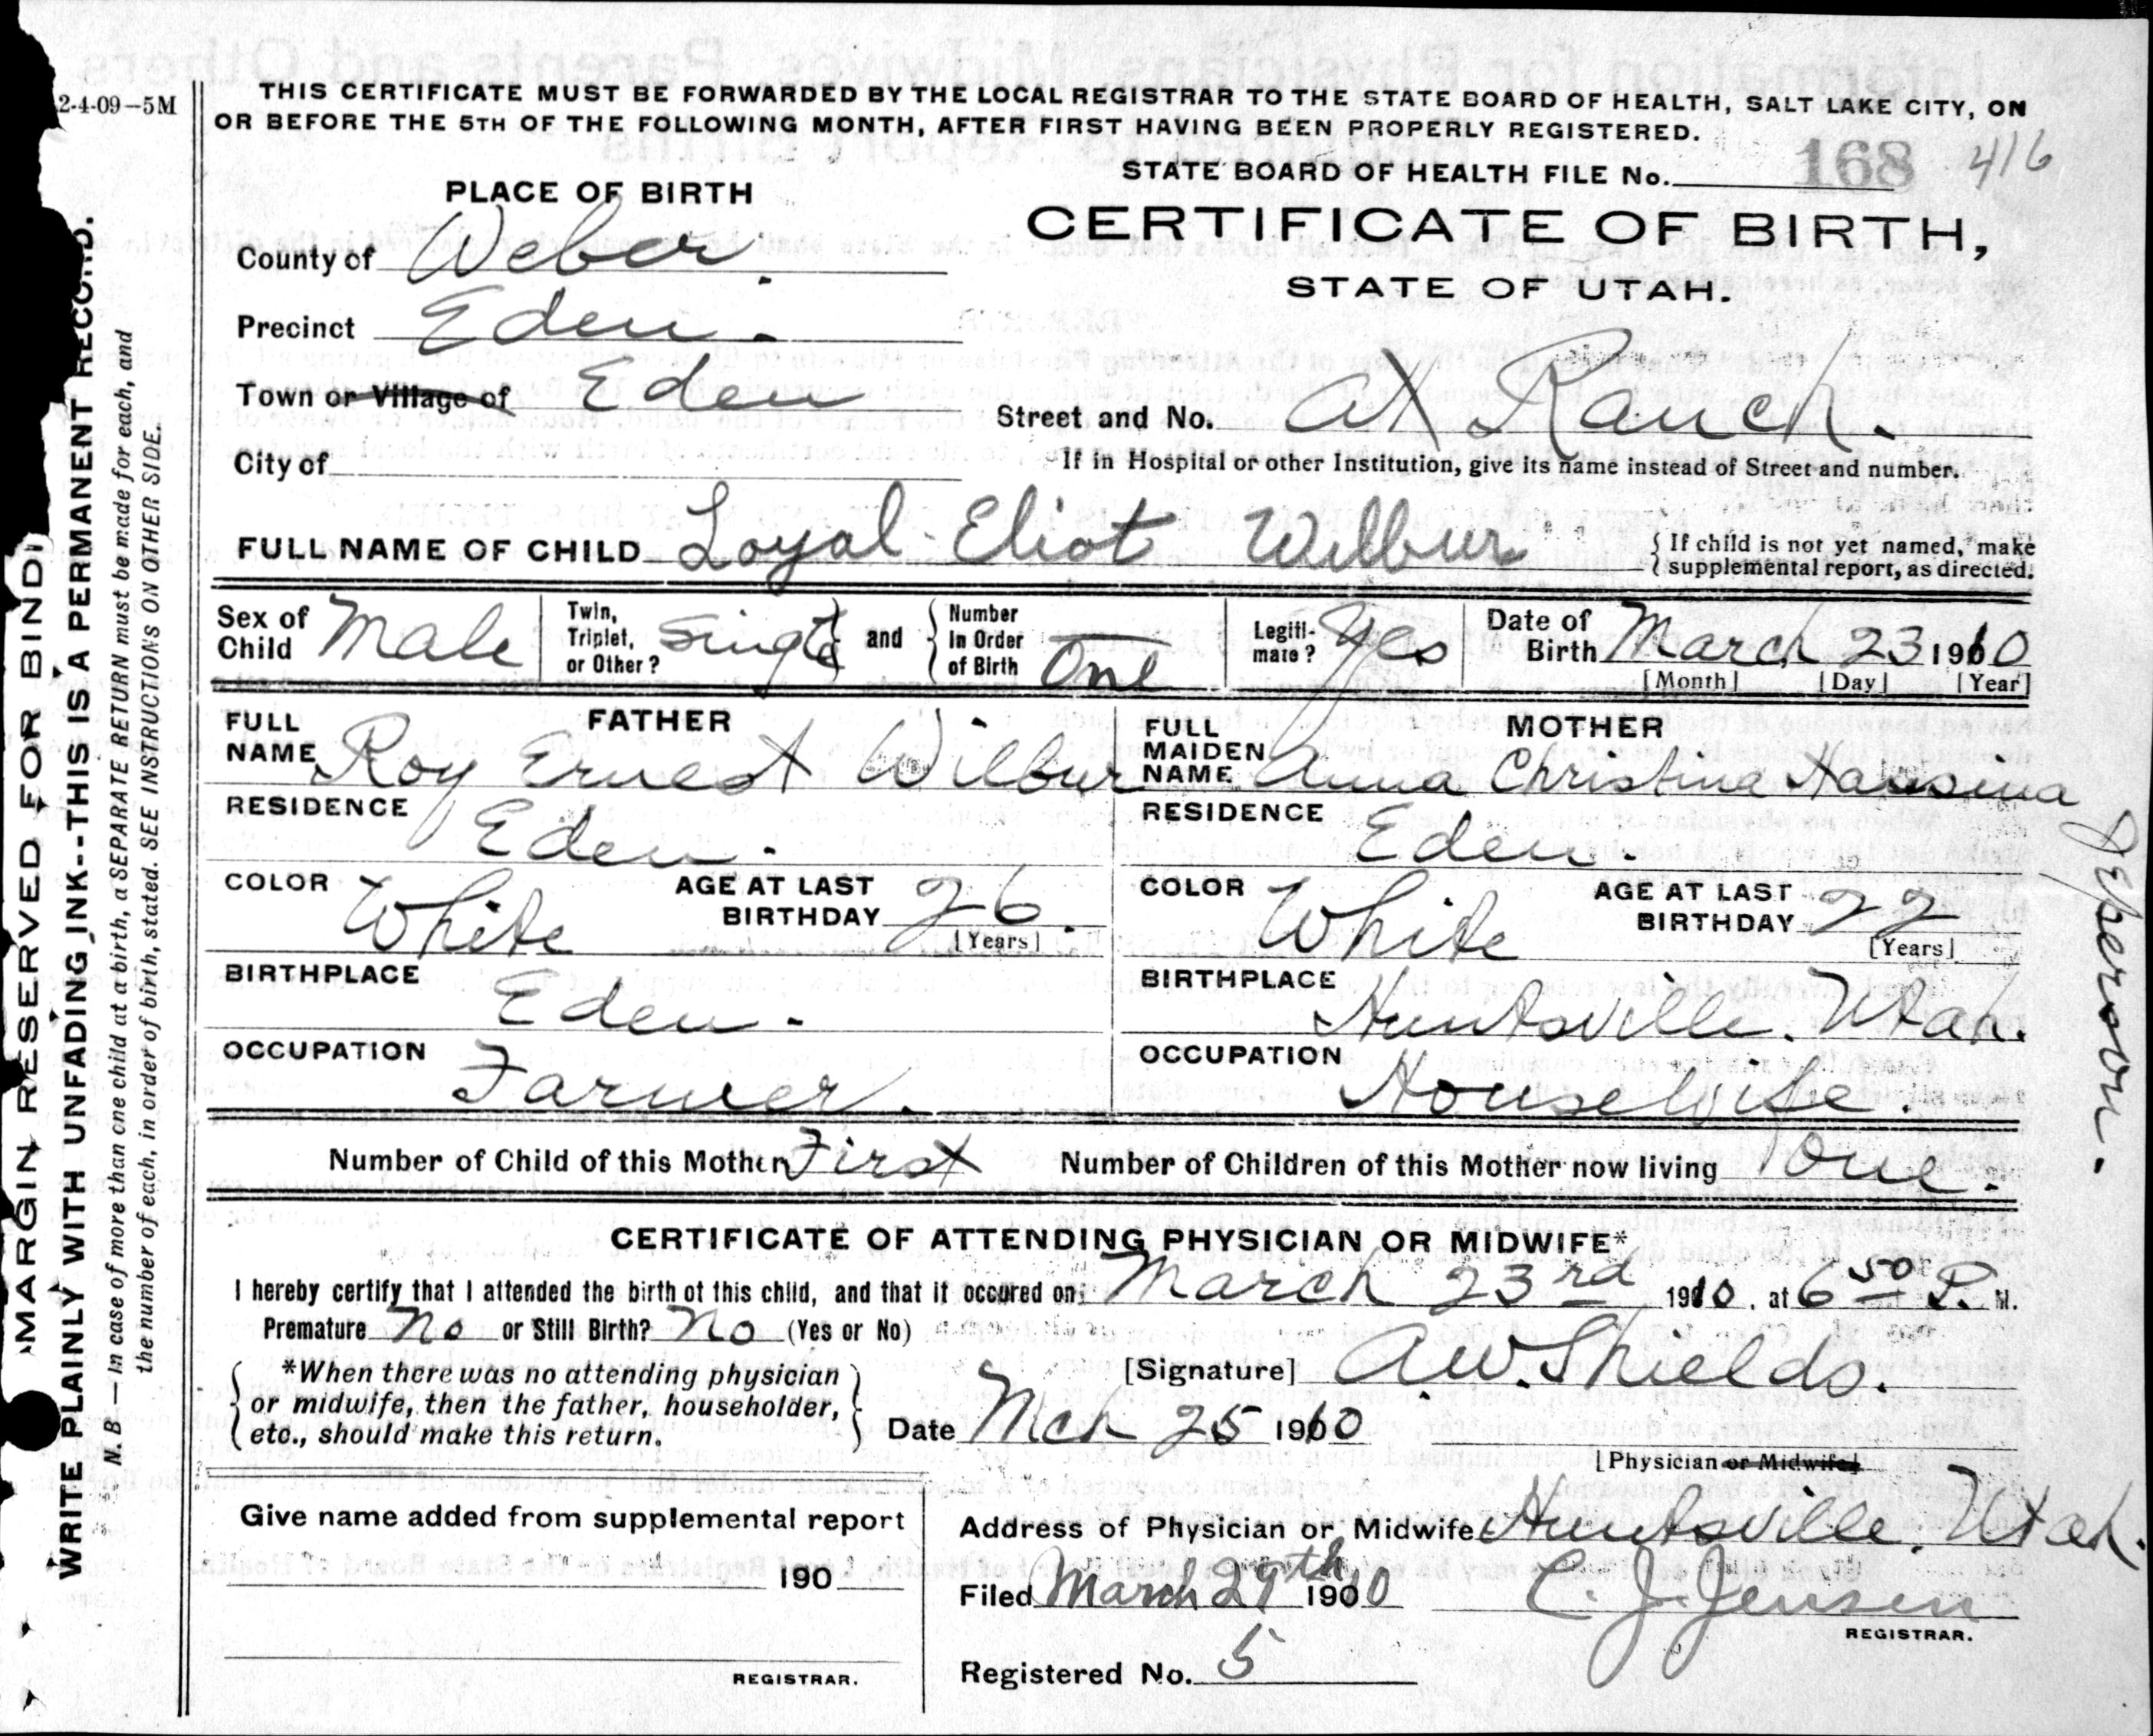 2-4-09—5M
THIS CERTIFICATE MUST BE FORWARDED BY THE LOCAL REGISTRAR TO THE STATE BOARD OF HEALTH, SALT LAKE CITY, ON
OR BEFORE THE 5TH OF THE FOLLOWING MONTH, AFTER FIRST HAVING BEEN PROPERLY REGISTERED.
STATE BOARD OF HEALTH FILE No. 168 416
PLACE OF BIRTH
CERTIFICATE OF BIRTH,
STATE OF UTAH.
County of Weber.
Precinct Eden.
Town or Village of Eden
Street and No. At Ranch.
City of
If in Hospital or other Institution, give its name instead of Street and number.
FULL NAME OF CHILD Loyal Eliot Wilbur
{ If child is not yet named, make
{ supplemental report, as directed.
Sex of Child Male
Twin, Triplet, or Other? Single } and { Number In Order of Birth One
Legitimate? Yes
Date of Birth March 23 1910
[Month] [Day] [Year]
FATHER
FULL NAME Roy Ernest Wilbur
MOTHER
FULL MAIDEN NAME Anna Christina Jeperson.
RESIDENCE Eden.
RESIDENCE Eden.
COLOR White AGE AT LAST BIRTHDAY 26. [Years]
COLOR White AGE AT LAST BIRTHDAY 22 [Years]
BIRTHPLACE Eden.
BIRTHPLACE Huntsville. Utah.
OCCUPATION Farmer.
OCCUPATION Housewife.
Number of Child of this Mother First Number of Children of this Mother now living One.
CERTIFICATE OF ATTENDING PHYSICIAN OR MIDWIFE*
I hereby certify that I attended the birth of this child, and that it occured on March 23rd 1910, at 6 50 P. M.
Premature No or Still Birth? No (Yes or No)
*When there was no attending physician
or midwife, then the father, householder,
etc., should make this return.
[Signature] A.W. Shields.
Date Mch 25 1910
[Physician or Midwife]
Give name added from supplemental report
190
REGISTRAR.
Address of Physician or Midwife Huntsville, Utah.
Filed March 29th 1900 C. J. Jensen
REGISTRAR.
Registered No. 5
MARGIN RESERVED FOR BINDI
WRITE PLAINLY WITH UNFADING INK--THIS IS A PERMANENT RECORD.
N. B.—In case of more than one child at a birth, a SEPARATE RETURN must be made for each, and
the number of each, in order of birth, stated. SEE INSTRUCTIONS ON OTHER SIDE.